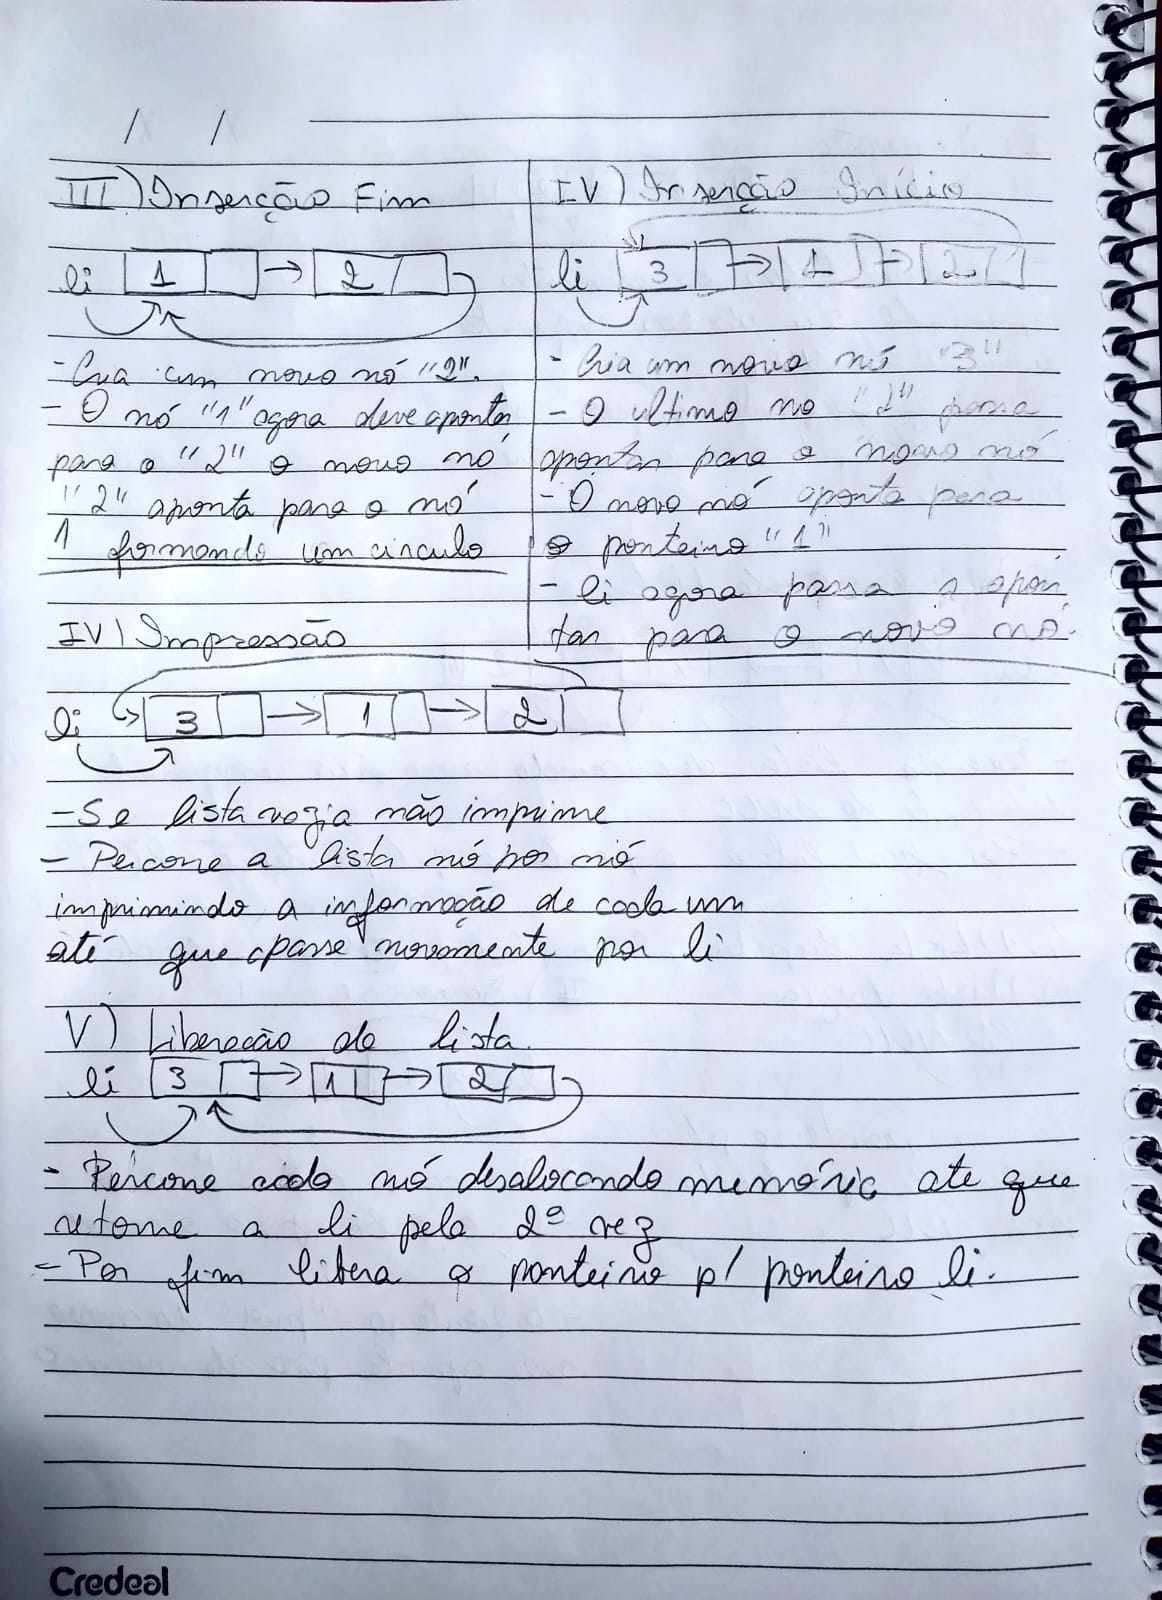 / /
III) Inserção Fim
li 1 → 2
- Cria um novo nó "2".
- O nó "1" agora deve apontar
para o "2" o novo nó
"2" aponta para o nó
1 formando um circulo
IV) Inserção Início
li 3 → 1 → 2
- Cria um novo nó "3"
- O ultimo no "2" passa
apontar para o novo nó
- O novo nó aponta para
o ponteiro "1"
- li agora passa a apon
tar para o novo nó.
IV) Impressão
li 3 → 1 → 2
- Se lista vazia não imprime
- Percorre a lista nó por nó
imprimindo a informação de cada um
até que passe novamente por li
V) Liberação de lista.
li 3 → 1 → 2
- Percorre cada nó desalocando memória ate que
retorne a li pela 2ª vez
- Por fim libera o ponteiro p/ ponteiro li.
Credeal